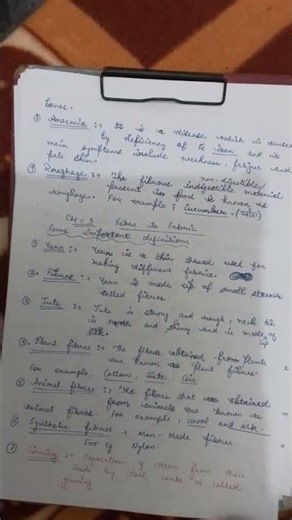 bones.
⑧ Anaemia :→ It is a disease which is caused
by deficiency of fe iron and its
main symptoms include weakness, fatigue and
pale skin.
⑨ Roughage :→ The fibrous indigestible material
non-digestible/
present in food is known as
roughage. For example : Cucumber -
CH = 3 Fibre to Fabric
Some important definitions
① Yarn :→ Yarn is a thin thread used for
making different fabrics.
② Fibres :→ Yarn is made up of small strands
called fibres.
③ Jute :→ Jute is strong and rough,
is and shiny and is made of
④ Plant fibres :→ The fibres obtained from plants
are known as plant fibres.
For example. Cotton, Jute, Coir
⑤ Animal fibres :→ The fibres that are obtained
from animals are known as
animal fibres. For example, wool and silk.
⑥ Synthetic fibres → Man-Made fibres
For eg Nylon.
⑦ Ginning :→ Separation of cotton from their
seeds by combs is called
ginning